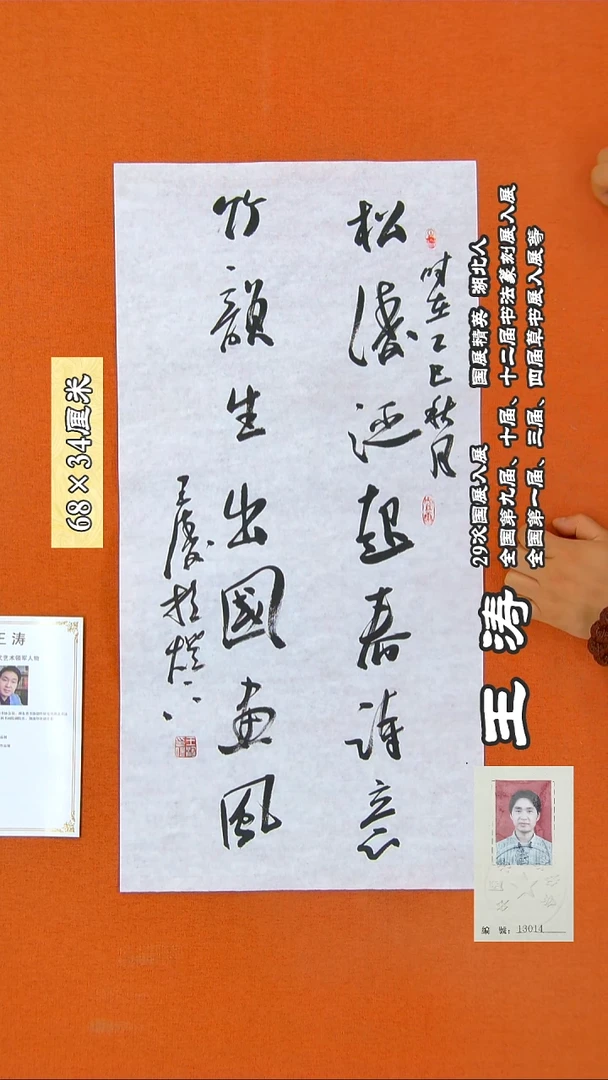 时在乙巳秋月
松涛涌起唐诗意
竹韵生出國画風
王涛於
68×34厘米
王涛
29次国展入展 国展精英 湖北人
全国第九届、十届、十二届书法篆刻展入展
全国第一届、三届、四届草书展入展等
王涛
13014